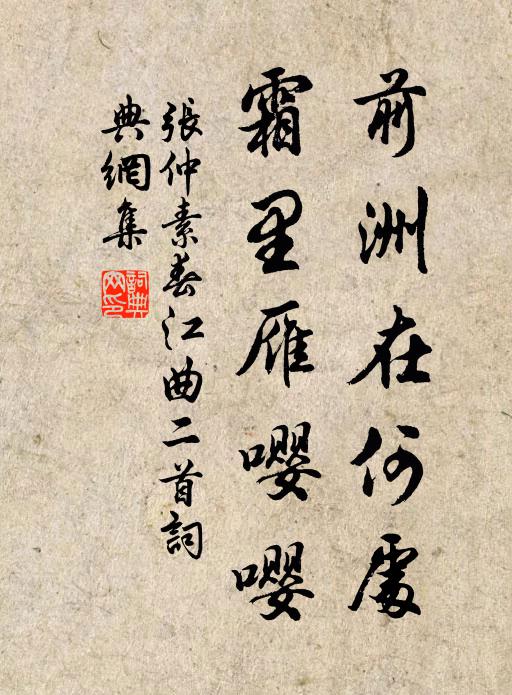 前洲在何處
霜里雁嚶嚶
張仲素春江曲二首詞
典網集
詞典网印